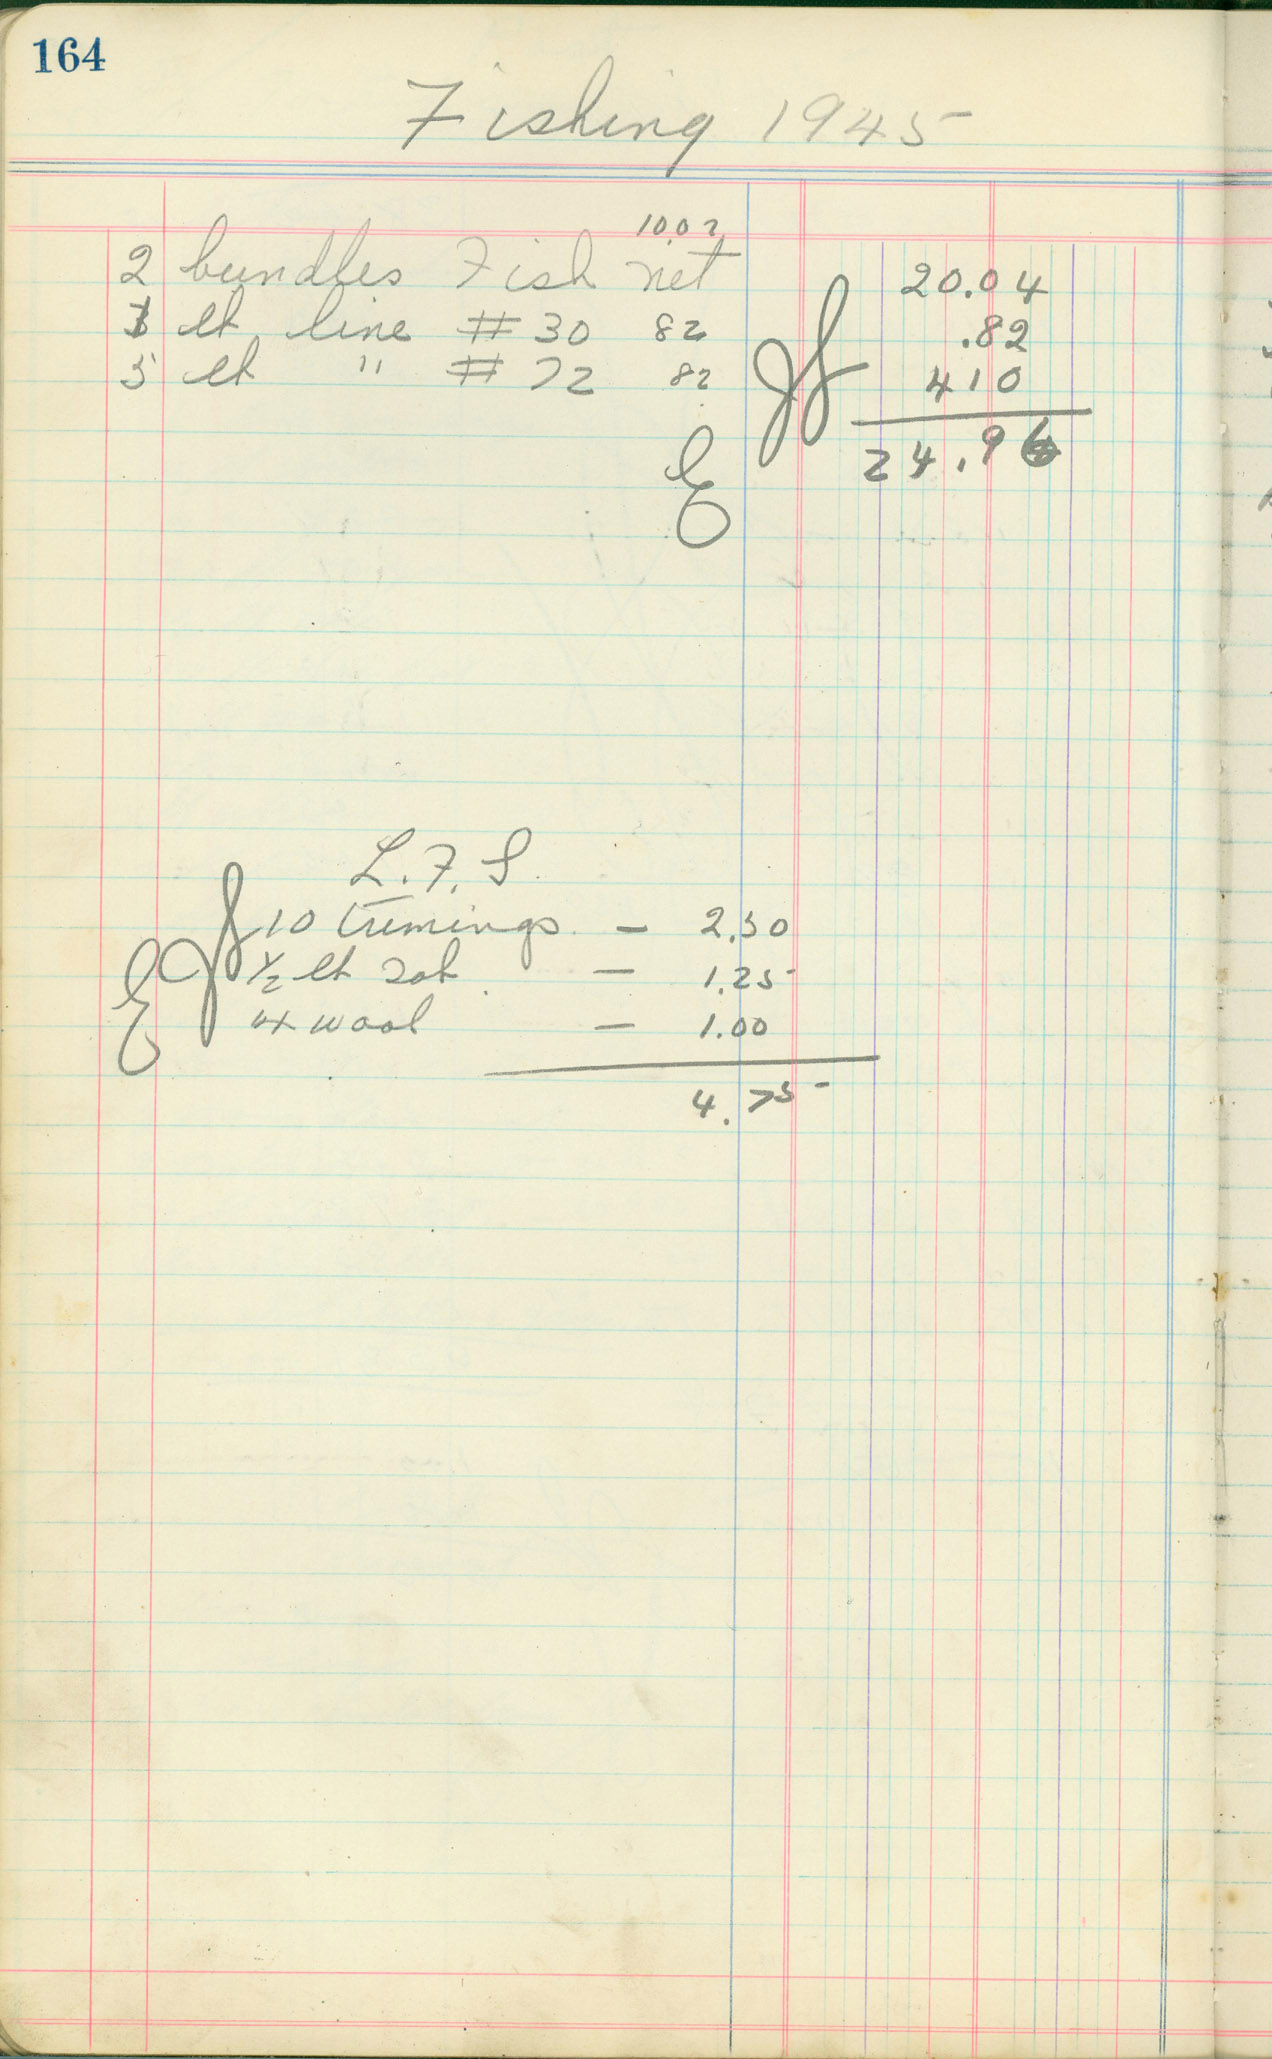 164
Fishing 1945
10.02
2 bundles Fish net 20.04
1 lb line # 30 82 .82
5 lb " # 72 82 410
24.96
L.F.S.
10 trimings. — 2.50
1/2 lb — 1.25
4 wool — 1.00
4.75